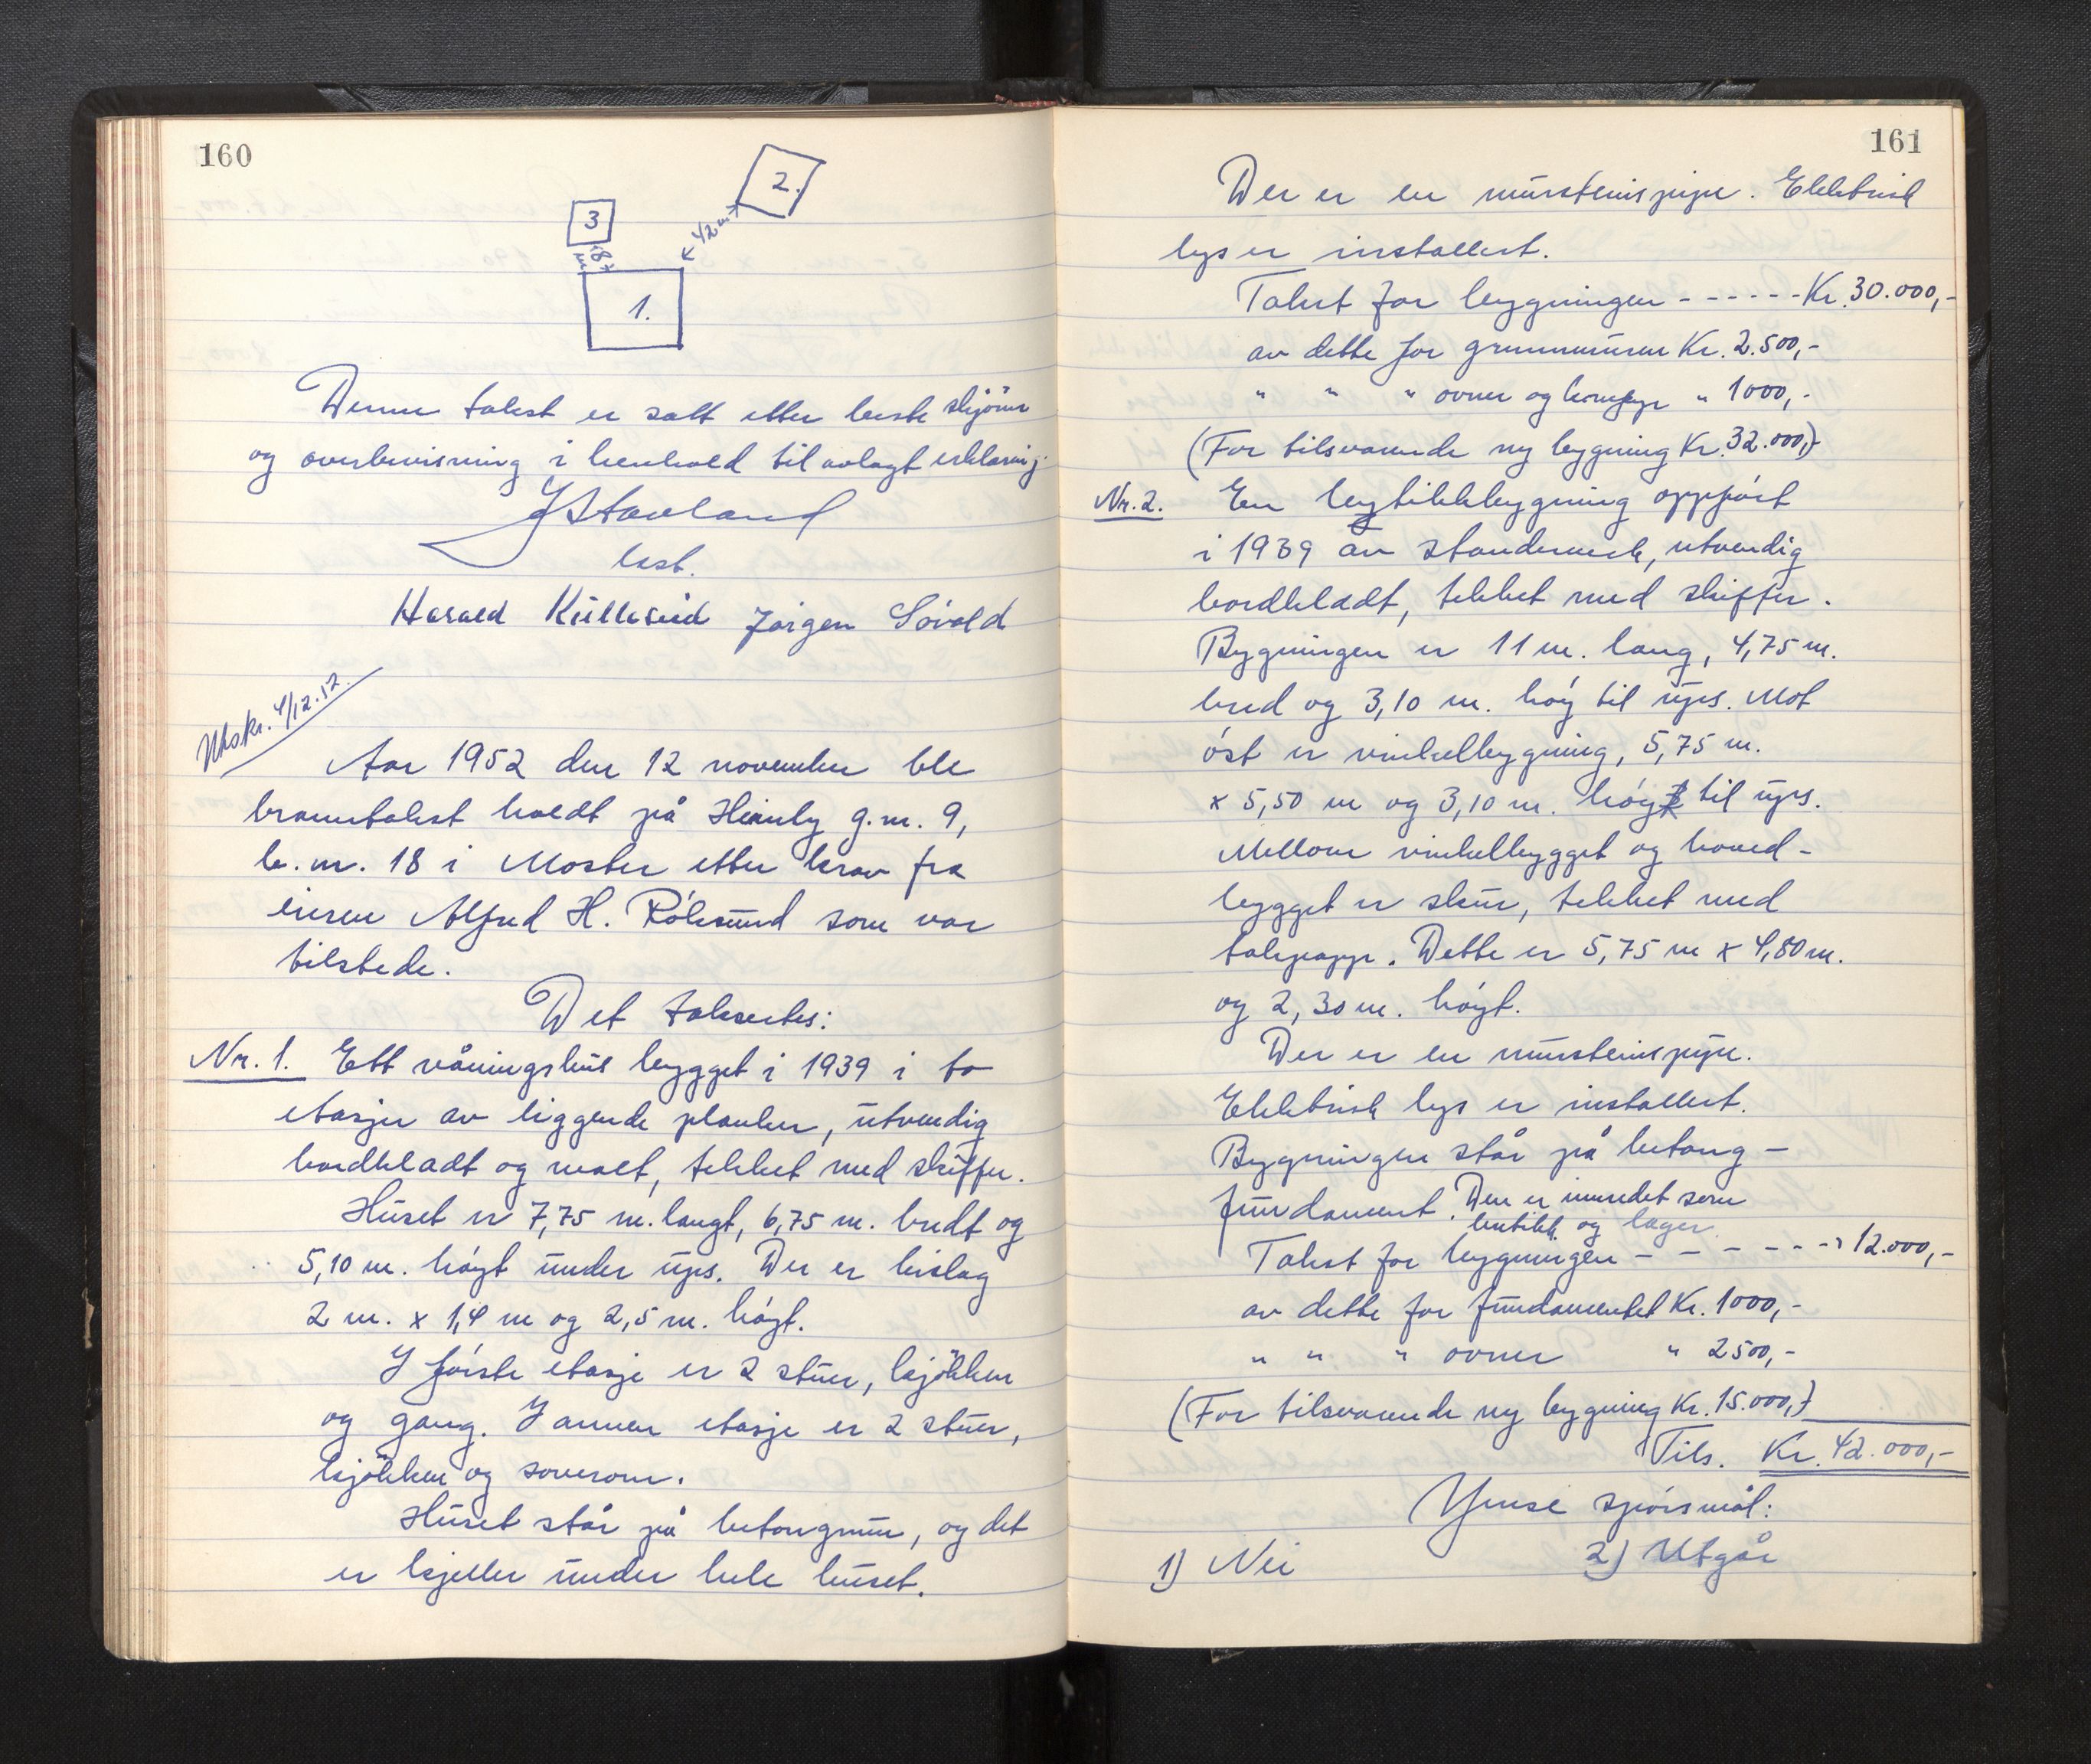 160
2.
42 m
3
18 m
1.
Denne takst er satt etter beste skjönn
og overbevisning i henhold til avlagt erklæring.
J Stavland
lest.
Harald Kulleseid Jörgen Sövold
Utskr. 4/12.52.
Aar 1952 den 12 november ble
branntakst holdt på Heimly g.nr. 9,
b.nr. 18 i Moster etter krav fra
eieren Alfred H. Röksund som var
tilstede.
Det takseres:
Nr. 1. Ett våningshus bygget i 1939 i to
etasjer av liggende planker, utvendig
bordkledt og malt, tekket med skiffer.
Huset er 7,75 m. langt, 6,75 m. bredt og
5,10 m. högt under ups. Der er bislag
2 m. x 1,4 m og 2,5 m. högt.
I förste etasje er 2 stuer, kjökken
og gang. I annen etasje er 2 stuer,
kjökken og soverom.
Huset står på betongmur, og det
er kjeller under hele huset.
161
Der er en mursteinspipe. Elektrisk
lys er installert.
Takst for bygningen ------ Kr. 30.000,-
av dette for grunnmuren Kr. 2.500,-
" " " ovner og komfyr " 1000,-
(For tilsvarende ny bygning Kr. 32.000,-)
Nr. 2. En butikkbygning oppfört
i 1939 av standerverk, utvendig
bordkledt, tekket med skiffer.
Bygningen er 11 m. lang, 4,75 m.
bred og 3,10 m. höy til ups. Mot
öst er vinkelbygning, 5,75 m.
x 5,50 m og 3,10 m. hög til ups.
Mellom vinkelbygget og hoved-
bygget er skur, tekket med
takpapp. Dette er 5,75 m x 4,80 m.
og 2,30 m. högt.
Der er en mursteinspipe.
Elektrisk lys er installert.
Bygningen står på betong-
fundament. Den er innredet som
butikk og lager.
Takst for bygningen ------ " 12.000,-
av dette for fundamentet Kr. 1000,-
" " " ovner " 2500,-
(For tilsvarende ny bygning Kr. 15.000,-)
Tils. Kr. 42.000,-
Ymse spörsmål:
1) Nei 2) Utgår